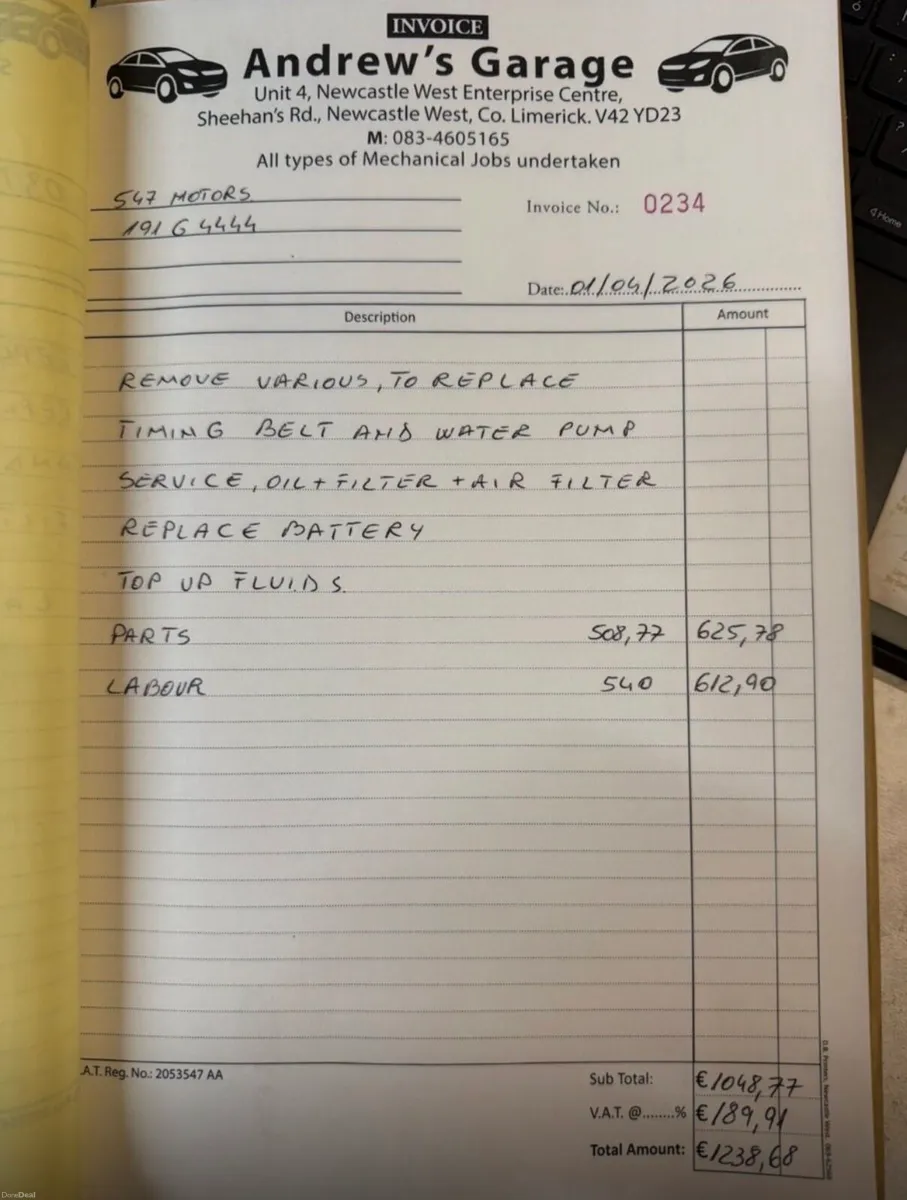 INVOICE
Andrew's Garage
Unit 4, Newcastle West Enterprise Centre,
Sheehan's Rd., Newcastle West, Co. Limerick. V42 YD23
M: 083-4605165
All types of Mechanical Jobs undertaken
547 MOTORS
191 G 4444
Invoice No.: 0234
Date: 01/04/2026
Description Amount
REMOVE VARIOUS, TO REPLACE
TIMING BELT AND WATER PUMP
SERVICE, OIL + FILTER + AIR FILTER
REPLACE BATTERY
TOP UP FLUIDS
PARTS 508,77 625,78
LABOUR 540 612,90
.A.T. Reg. No.: 2053547 AA
Sub Total: €1048,77
V.A.T. @........% €189,91
Total Amount: €1238,68
Home
DoneDeal